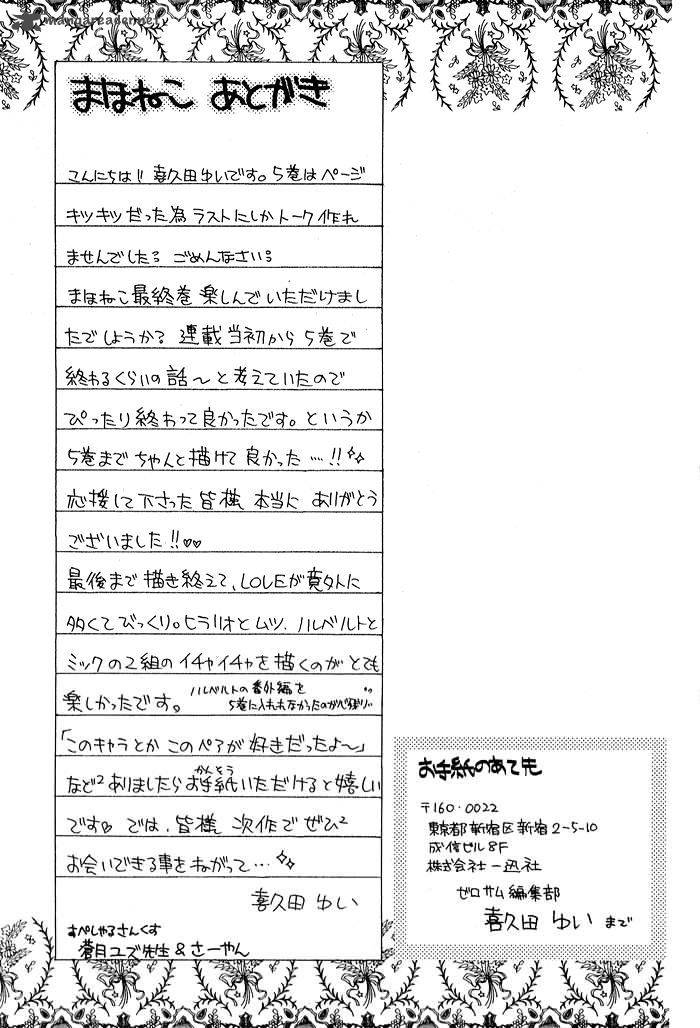 mangareader.net
まほねこ あとがき
こんにちは!! 喜久田ゆいです。5巻はページ
キツキツだった為 ラストにしかトーク作れ
ませんでした。ごめんなさい。
まほねこ最終巻 楽しんでいただけまし
たでしょうか? 連載当初から 5巻で
終わるくらいの話〜と考えていたので
ぴったり終わって良かったです。というか
5巻までちゃんと描けて良かった…!!
応援して下さった皆様 本当に ありがとう
ございました!!♡♡
最後まで描き終えて、LOVEが意外に
多くてびっくり。ヒラリオとムツ、ハルベルトと
ミックの2組のイチャイチャを描くのがとても
楽しかったです。
ハルベルトの番外編を
5巻に入れれなかったのが心残り
「このキャラとか このペアが好きだったよ〜」
など²ありましたらお手紙いただけると嬉しい
かんそう
です♡ では、皆様 次作で ぜひ²
お会いできる事をねがって…
喜久田 ゆい
すぺしゃるさんくす
蒼月ユブ先生 & さーやん
お手紙のあて先
〒160-0022
東京都新宿区新宿2-5-10
成信ビル8F
株式会社一迅社
ゼロサム編集部
喜久田 ゆい まで